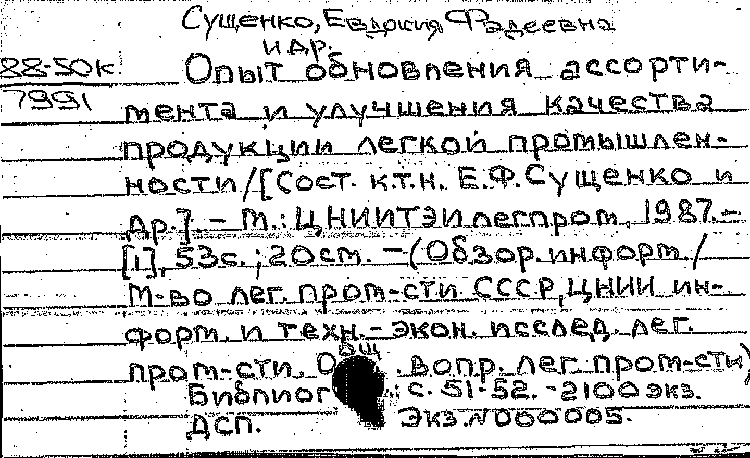 Сущенко, Евдокия Фадеевна
и др.
88-50к Опыт обновления ассорти-
7991 мента и улучшения качества
продукции легкой промышлен-
ности/[Сост. к.т.н. Е.Ф.Сущенко и
др.] - М.: ЦНИИТЭИлегпром, 1987.-
[1], 53с.; 20см. -(Обзор.информ./
М-во лег. пром-сти СССР, ЦНИИ ин-
форм. и техн.-экон. исслед. лег.
пром-сти. Общ. вопр. лег. пром-сти)
Библиог с. 51-52. - 2100 экз.
ДСП. Экз. N000005.